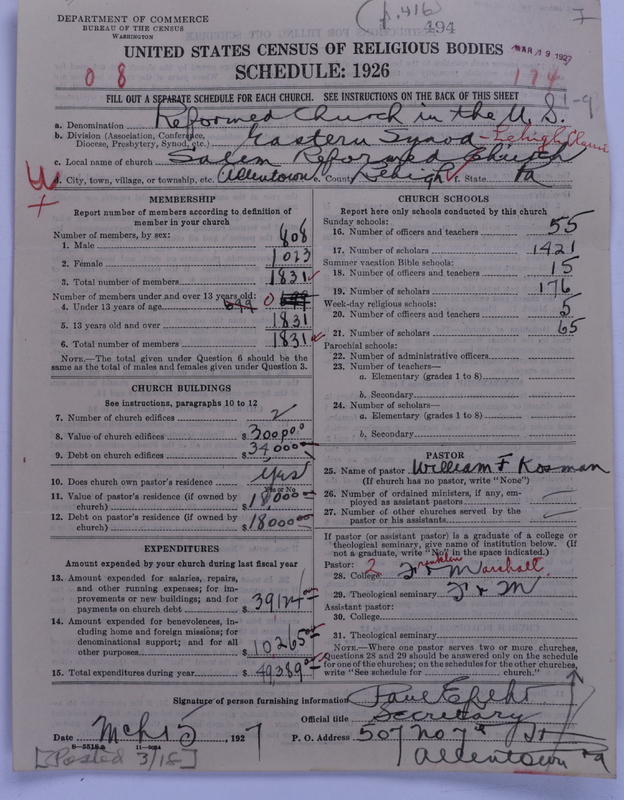 (p. 416)
494
7
DEPARTMENT OF COMMERCE
BUREAU OF THE CENSUS
WASHINGTON
UNITED STATES CENSUS OF RELIGIOUS BODIES
MAR 19 1927
SCHEDULE: 1926
0 8
174
FILL OUT A SEPARATE SCHEDULE FOR EACH CHURCH. SEE INSTRUCTIONS ON THE BACK OF THIS SHEET
1-9
a. Denomination Reformed Church in the U. S.
b. Division (Association, Conference, Diocese, Presbytery, Synod, etc.) Eastern Synod - Lehigh Classis
c. Local name of church Salem Reformed Church
d. City, town, village, or township, etc. Allentown e. County Lehigh f. State Pa
MEMBERSHIP
Report number of members according to definition of
member in your church
Number of members, by sex:
1. Male 808
2. Female 1023
3. Total number of members 1831
Number of members under and over 13 years old:
4. Under 13 years of age 0
5. 13 years old and over 1831
6. Total number of members 1831
NOTE.—The total given under Question 6 should be the
same as the total of males and females given under Question 3.
CHURCH BUILDINGS
See instructions, paragraphs 10 to 12
7. Number of church edifices 2
8. Value of church edifices $ 300000
9. Debt on church edifices $ 34,000
10. Does church own pastor's residence yes
Yes or No
11. Value of pastor's residence (if owned by
church) $ 18,000
12. Debt on pastor's residence (if owned by
church) $ 18000
EXPENDITURES
Amount expended by your church during last fiscal year
13. Amount expended for salaries, repairs,
and other running expenses; for im-
provements or new buildings; and for
payments on church debt $ 39124
14. Amount expended for benevolences, in-
cluding home and foreign missions; for
denominational support; and for all
other purposes $ 10265
15. Total expenditures during year $ 49,389
CHURCH SCHOOLS
Report here only schools conducted by this church
Sunday schools:
16. Number of officers and teachers 55
17. Number of scholars 1421
Summer vacation Bible schools:
18. Number of officers and teachers 15
19. Number of scholars 176
Week-day religious schools:
20. Number of officers and teachers 5
21. Number of scholars 65
Parochial schools:
22. Number of administrative officers
23. Number of teachers—
a. Elementary (grades 1 to 8)
b. Secondary
24. Number of scholars—
a. Elementary (grades 1 to 8)
b. Secondary
PASTOR
25. Name of pastor William F Kosman
(If church has no pastor, write "None")
26. Number of ordained ministers, if any, em-
ployed as assistant pastors
27. Number of other churches served by the
pastor or his assistants
If pastor (or assistant pastor) is a graduate of a college or
theological seminary, give name of institution below. (If
not a graduate, write "No" in the space indicated.)
Pastor: 2 Franklin
28. College F & Marshall
29. Theological seminary F & M
Assistant pastor:
30. College
31. Theological seminary
NOTE.—Where one pastor serves two or more churches,
Questions 28 and 29 should be answered only on the schedule
for one of the churches; on the schedules for the other churches,
write "See schedule for church."
Signature of person furnishing information
Official title Secretary
Date Mch 15, 1927 P. O. Address 507 No 7th St
Allentown Pa
11—9034
[Posted 3/18]